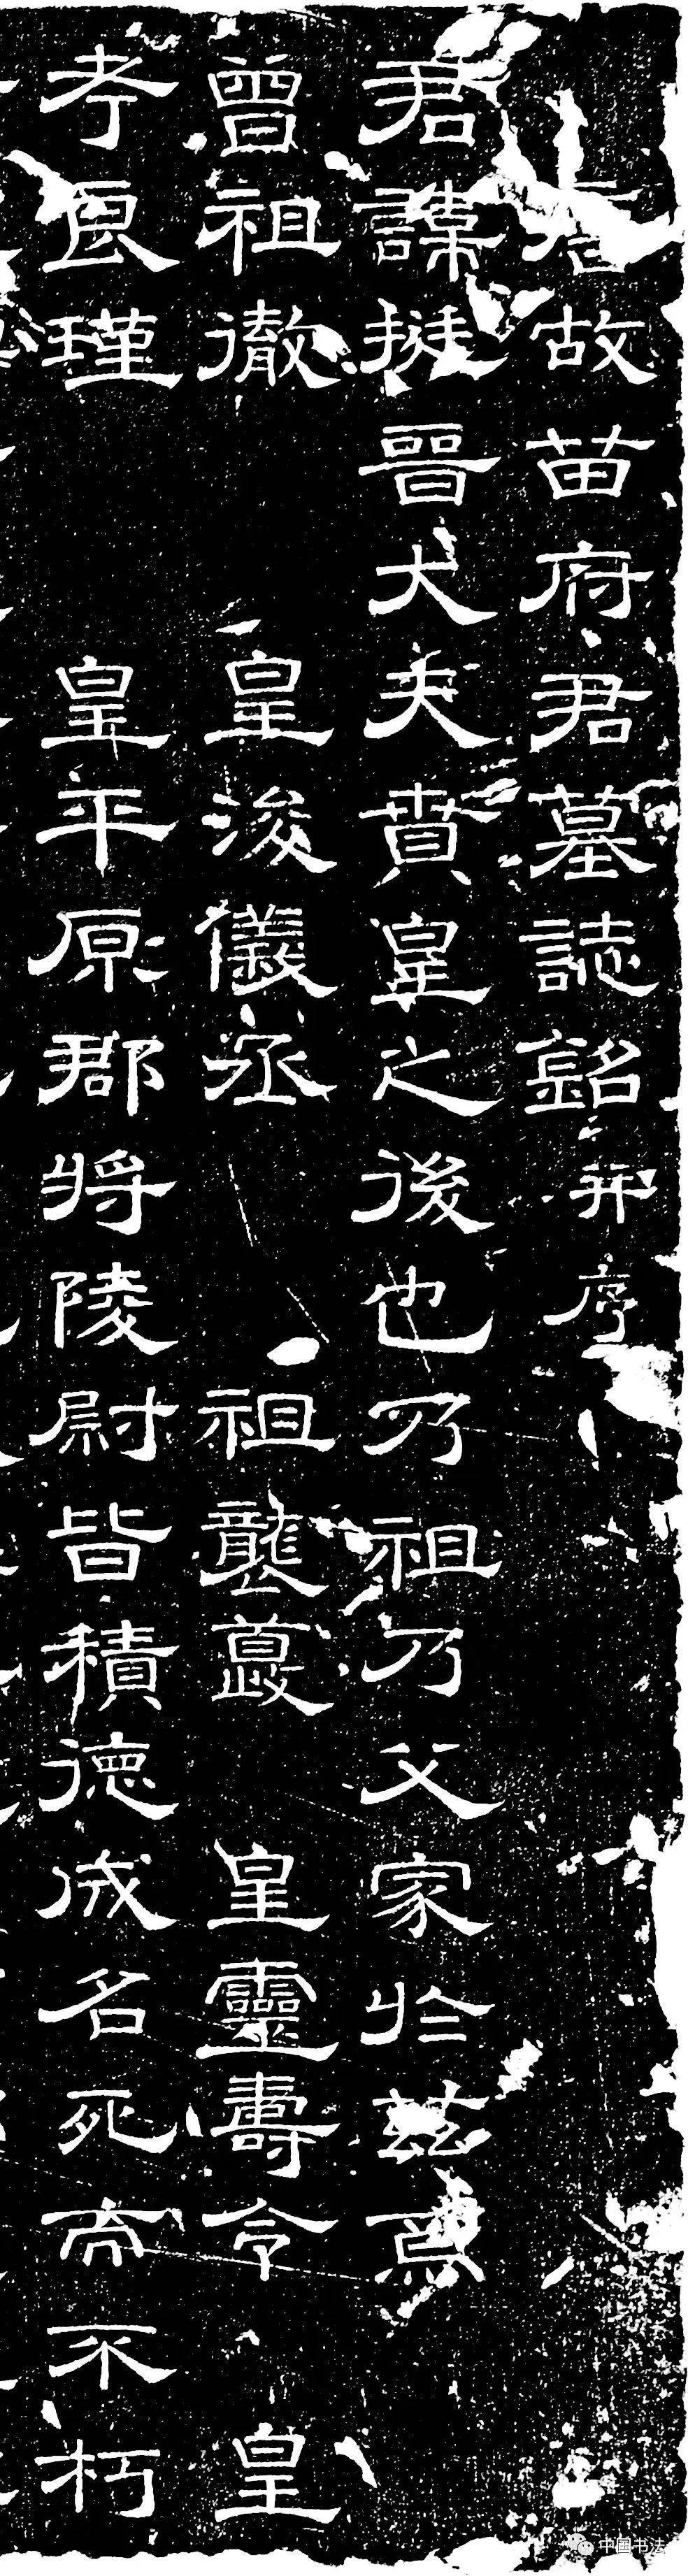 故苗府君墓誌銘并序
君諱挺晉大夫賁皇之後也乃祖乃父家於茲焉
曾祖徹 皇浚儀丞 祖襲夔 皇靈壽令 皇
考良瑾 皇平原郡將陵尉皆積德成名死而不朽
中国书法